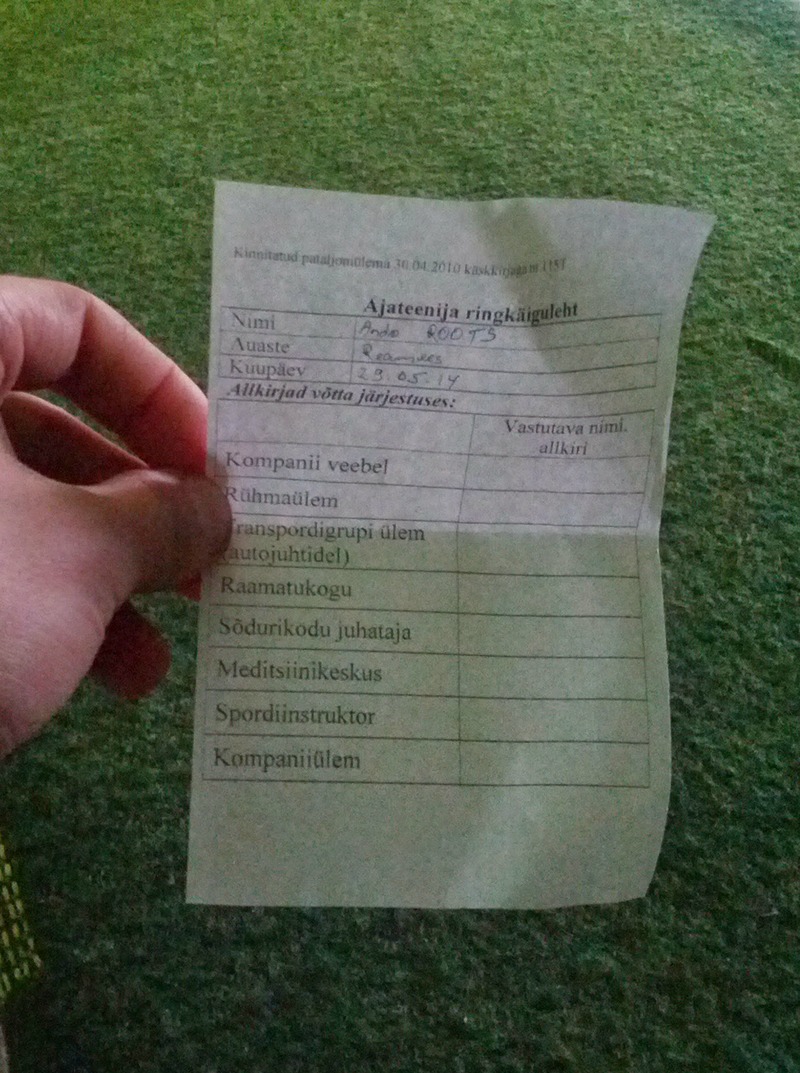 Kinnitatud pataljoniülema 30.04.2010 käskkirjaga nr 115T
Ajateenija ringkäiguleht
Nimi Ando ROOTS
Auaste Reamees
Kuupäev 29.05.14
Allkirjad võtta järjestuses:
Vastutava nimi,
allkiri
Kompanii veebel
Rühmaülem
Transpordigrupi ülem
(autojuhtidel)
Raamatukogu
Sõdurikodu juhataja
Meditsiinikeskus
Spordiinstruktor
Kompaniiülem